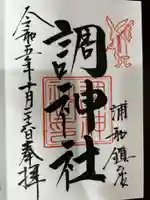 浦和鎮座
調神社
令和五年十月二十八日奉拝